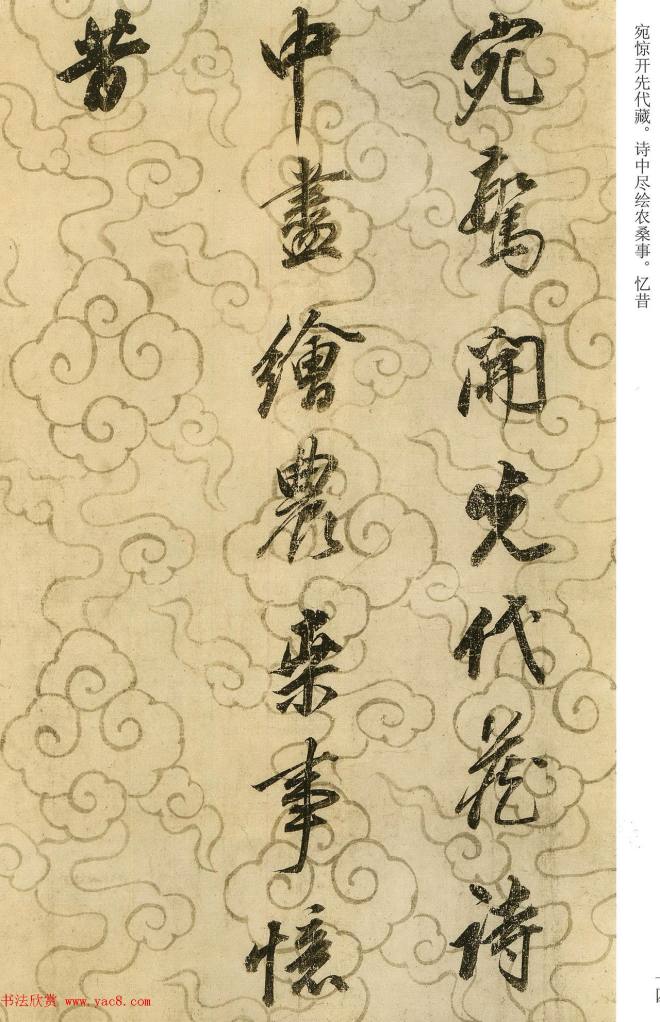 宛驚開先代藏詩
中盡繪農桒事憶
昔
宛惊开先代藏。诗中尽绘农桑事。忆昔
书法欣赏 www.yac8.com